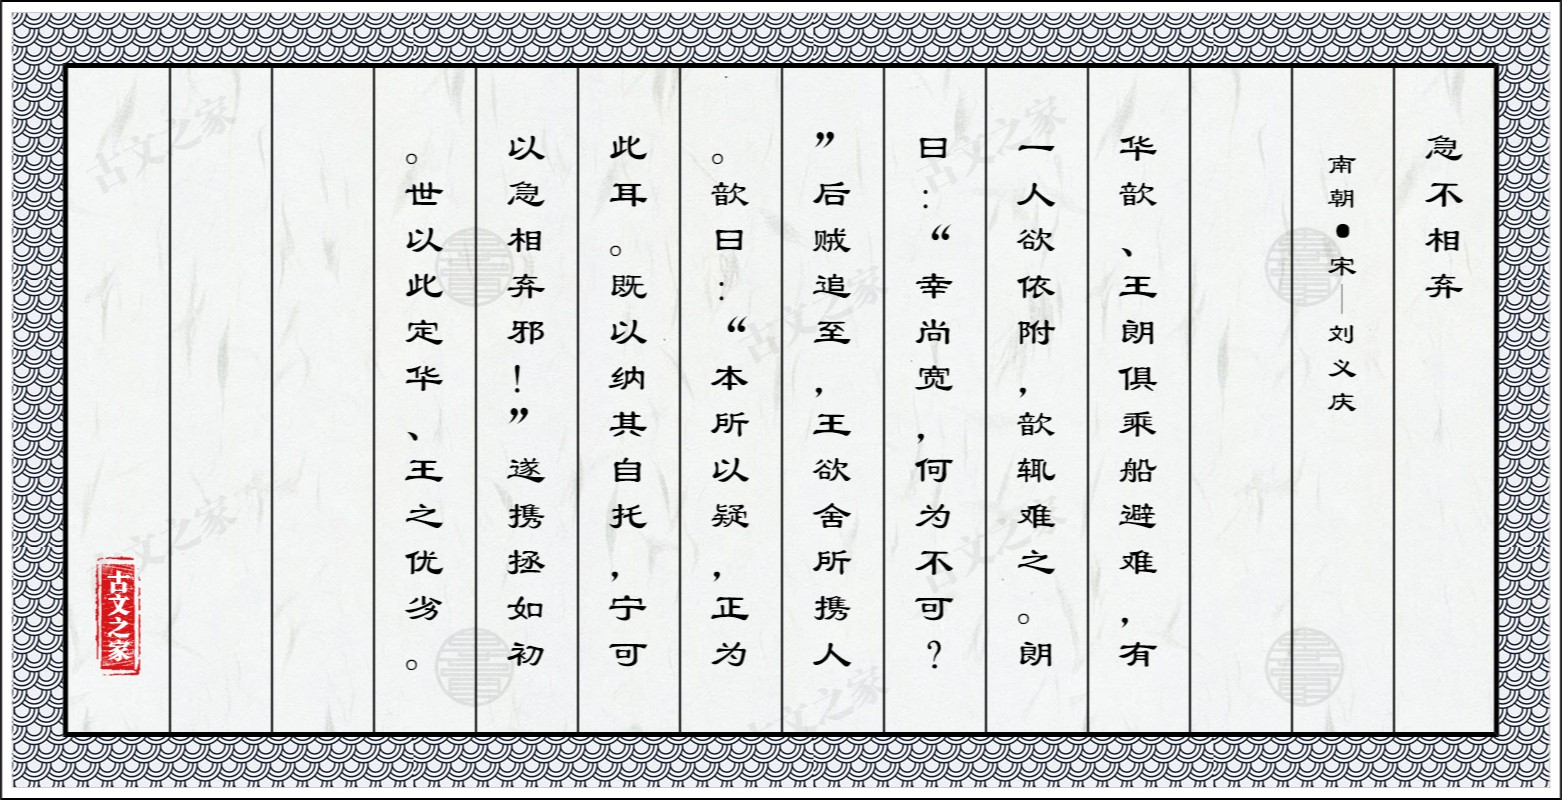 急不相弃
南朝●宋—刘义庆
华歆、王朗俱乘船避难，有
一人欲依附，歆辄难之。朗
曰：“幸尚宽，何为不可？
”后贼追至，王欲舍所携人
。歆曰：“本所以疑，正为
此耳。既以纳其自托，宁可
以急相弃邪！”遂携拯如初
。世以此定华、王之优劣。
古文之家